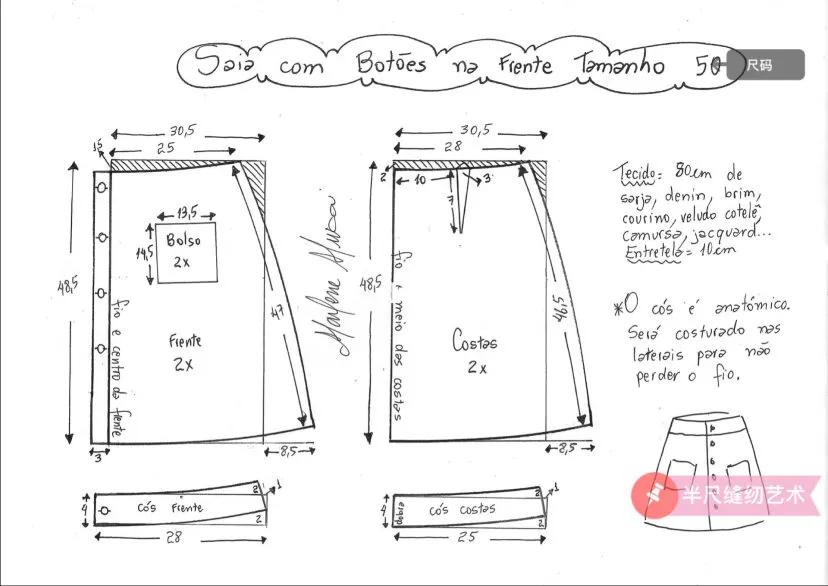 Saia com Botões na Frente Tamanho 50
尺码
30,5
25
1,5
13,5
14,5
Bolso
2x
48,5
47
Frente
2x
fio e centro da frente
3
8,5
Marlene Mukai
30,5
28
2
10
3
7
48,5
fio e meio das costas
Costas
2x
8,5
Tecido: 80cm de
sarja, denin, brim,
courino, veludo cotelê,
camursa, jacquard...
Entretela = 10cm
*O cós é anatômico.
Será costurado nas
laterais para não
perder o fio.
4
Cós Frente
2
2
1
28
4
dobra
cós costas
2
2
1
25
半尺缝纫艺术